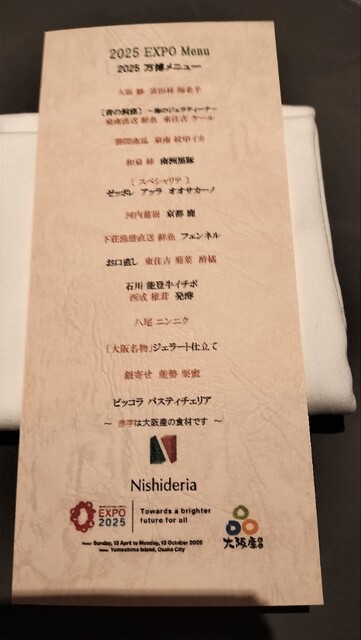 2025 EXPO Menu
2025 万博メニュー
大阪 鰺 富田林 海老芋
[青の洞窟] ～海のジェラティーナ～
泉南直送 鮮魚 東住吉 ケール
泉南 紋甲イカ
和泉 南洲黒豚
[スペシャリテ]
ゼッポレ アッラ オオサカーノ
河内蓮根 京都 鹿
下荘漁港直送 鮮魚 フェンネル
お口直し 東住吉 菊菜 酢橘
石川 能登牛イチボ
西成 椎茸 発酵
八尾 ニンニク
「大阪名物」ジェラート仕立て
銀寄せ 能勢 栗蜜
ピッコラ パスティチェリア
～ 赤字は大阪産の食材です ～
Nishideria
EXPO 2025
Towards a brighter
future for all
Sunday, 13 April to Monday, 13 October 2025
Yumeshima Island, Osaka City
大阪産